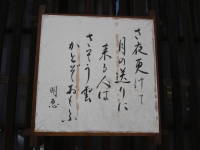 さ夜更けて
月の送りに
来る人は
さそう雲
かとぞおもふ
明恵